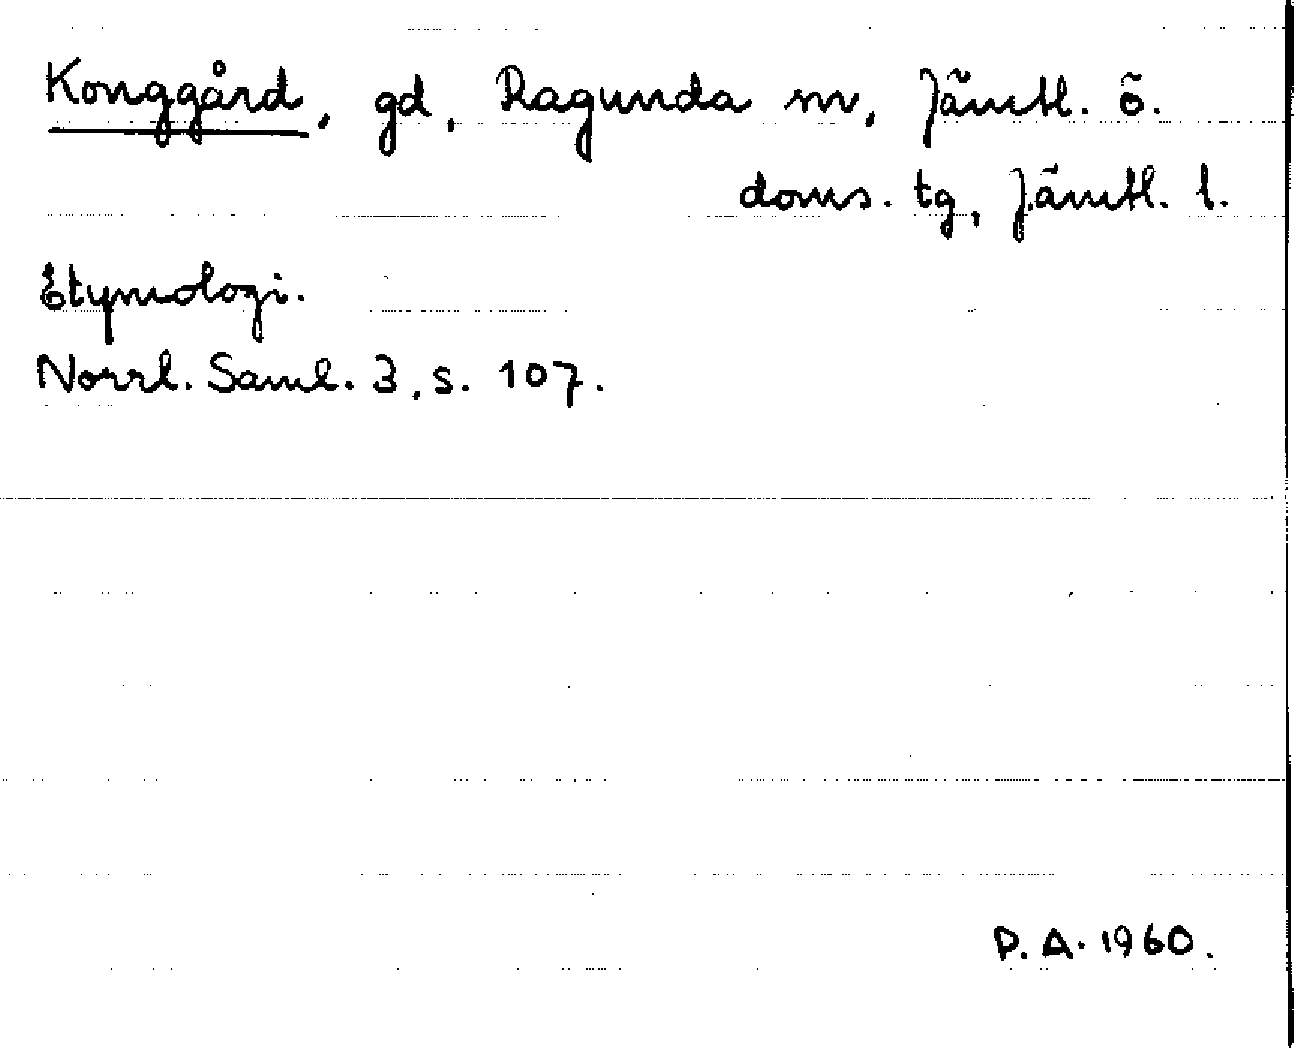 Konggård, gd, Ragunda sn, Jämtl. ö.
doms. tg, Jämtl. l.
Etymologi.
Norrl. Saml. 3, s. 107.
D. A. 1960.